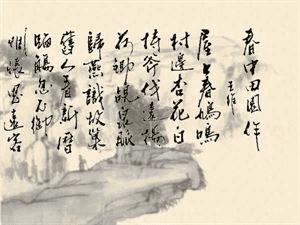 春中田園作
王維
屋上春鳩鳴
村邊杏花白
持斧伐遠揚
荷鋤覘泉脈
歸燕識故巢
舊人看新曆
臨觴忽不御
惆悵思遠客